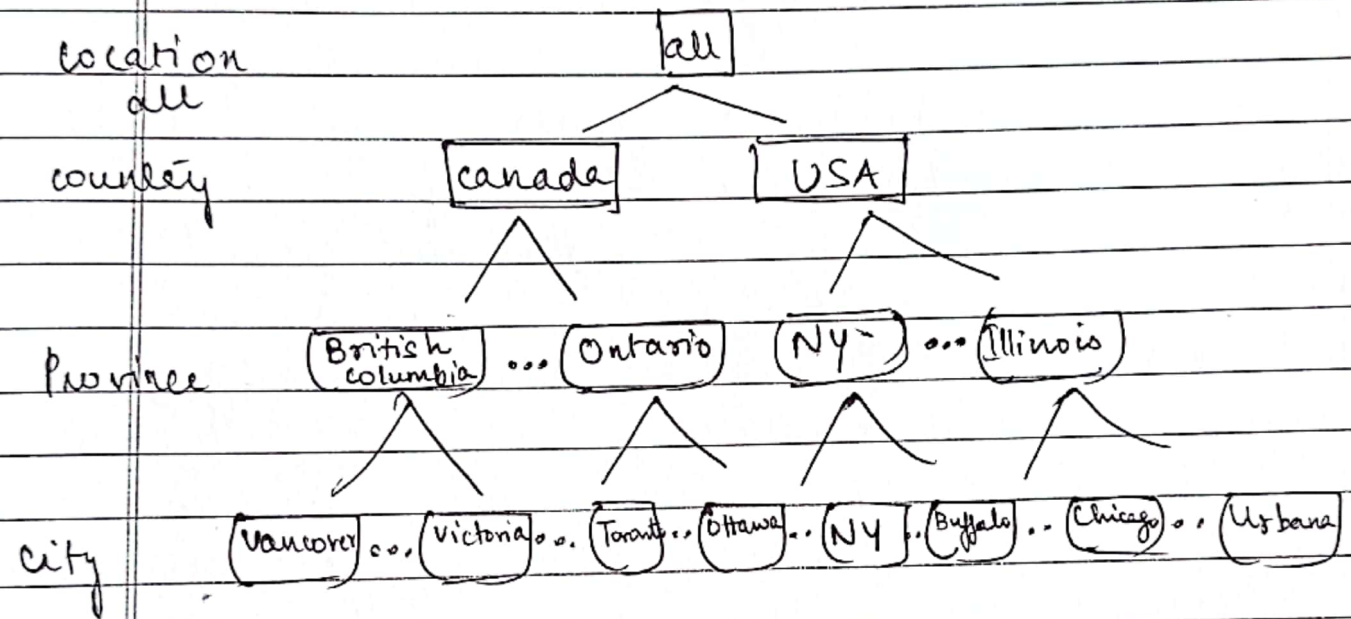 Location all
all
country canada USA
British columbia ... Ontario NY ... Illinois
Province
Vancover ... Victoria ... Toront .. Ottawa .. NY .. Buffalo .. Chicago .. Urbana
city